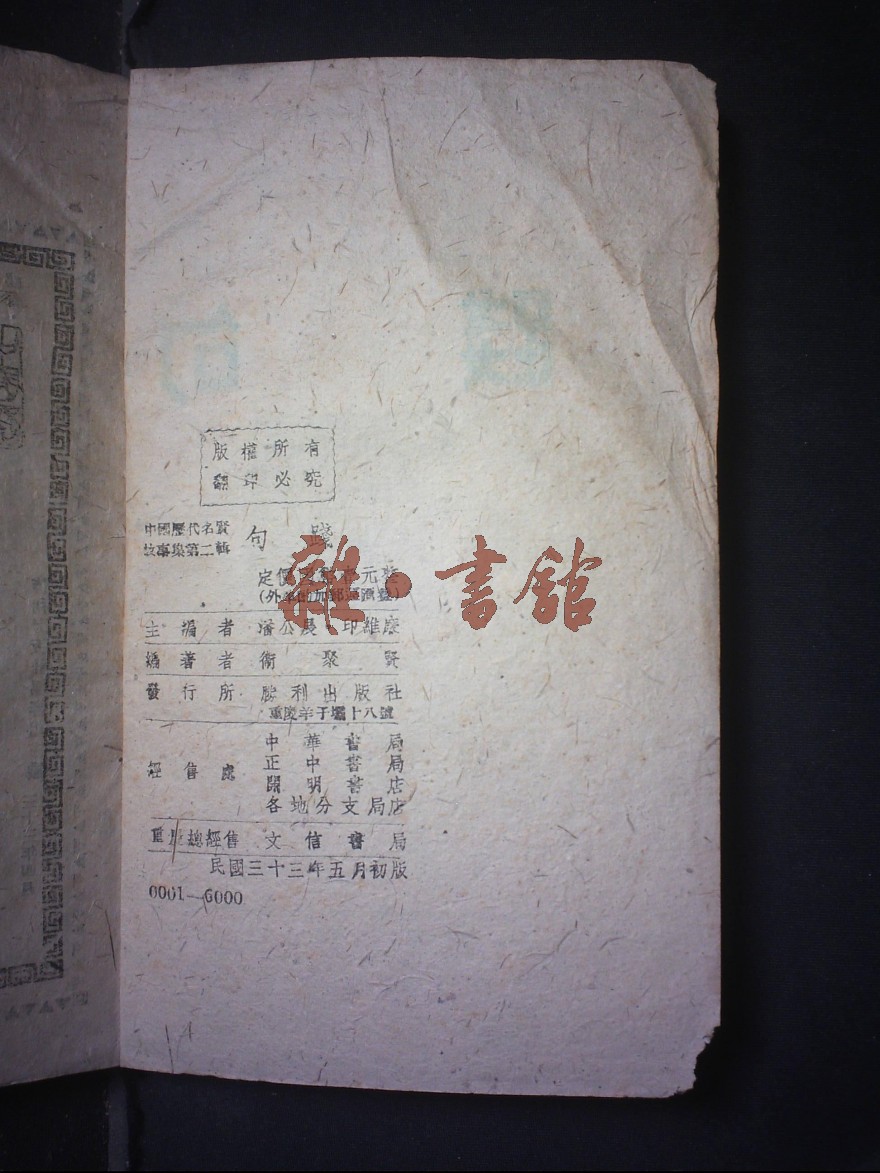 版權所有
翻印必究
中國歷代名賢
故事集第二輯
句踐
定價 元
(外埠酌加郵運匯費)
主編者 潘公展 印維廉
編著者 衛聚賢
發行所 勝利出版社
重慶羊子壩十八號
經售處
中華書局
正中書局
開明書店
各地分支局店
重慶總經售 文信書局
民國三十三年五月初版
0001—6000
雜·書館